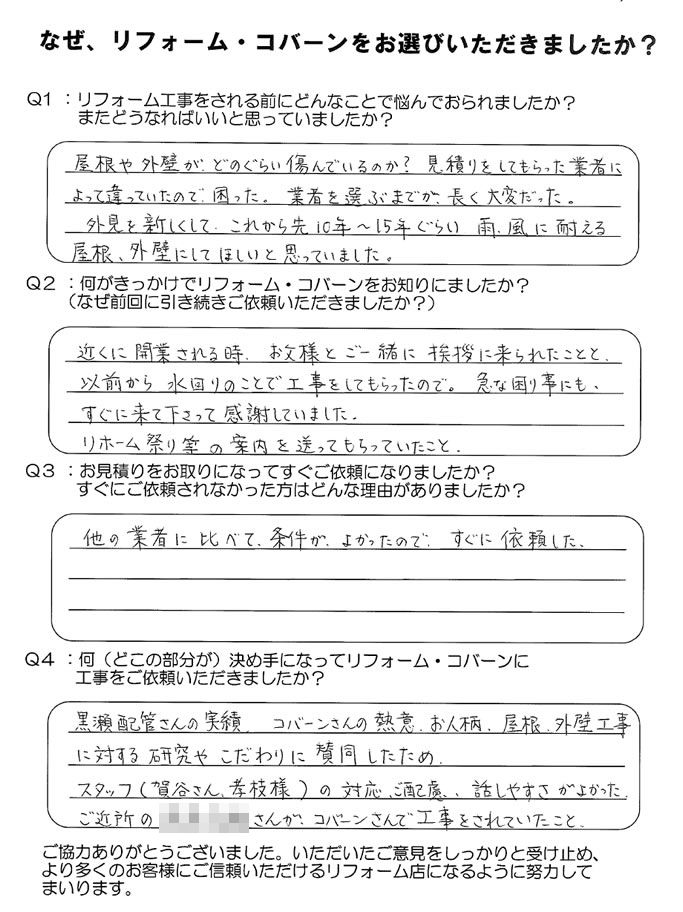 なぜ、リフォーム・コバーンをお選びいただきましたか？
Q1 ：リフォーム工事をされる前にどんなことで悩んでおられましたか？
またどうなればいいと思っていましたか？
屋根や外壁が、どのぐらい傷んでいるのか？ 見積りをしてもらった業者に
よって違っていたので、困った。 業者を選ぶまでが、長く大変だった。
外見を新しくして、これから先10年〜15年ぐらい 雨、風に耐える
屋根、外壁にしてほしいと思っていました。
Q2 ：何がきっかけでリフォーム・コバーンをお知りにましたか？
（なぜ前回に引き続きご依頼いただきましたか？）
近くに開業される時、お父様とご一緒に挨拶に来られたことと、
以前から水回りのことで工事をしてもらったので。 急な困り事にも、
すぐに来て下さって感謝していました。
リホーム祭り等の案内を送ってもらっていたこと。
Q3 ：お見積りをお取りになってすぐご依頼になりましたか？
すぐにご依頼されなかった方はどんな理由がありましたか？
他の業者に比べて、条件が、よかったので、すぐに依頼した、
Q4 ：何（どこの部分が）決め手になってリフォーム・コバーンに
工事をご依頼いただきましたか？
黒瀬配管さんの実績、コバーンさんの熱意、お人柄、屋根、外壁工事
に対する研究やこだわりに賛同したため、
スタッフ（賀谷さん、孝枝様）の対応、ご配慮、、話しやすさがよかった、
ご近所の さんが、コバーンさんで工事をされていたこと、
ご協力ありがとうございました。いただいたご意見をしっかりと受け止め、
より多くのお客様にご信頼いただけるリフォーム店になるように努力して
まいります。